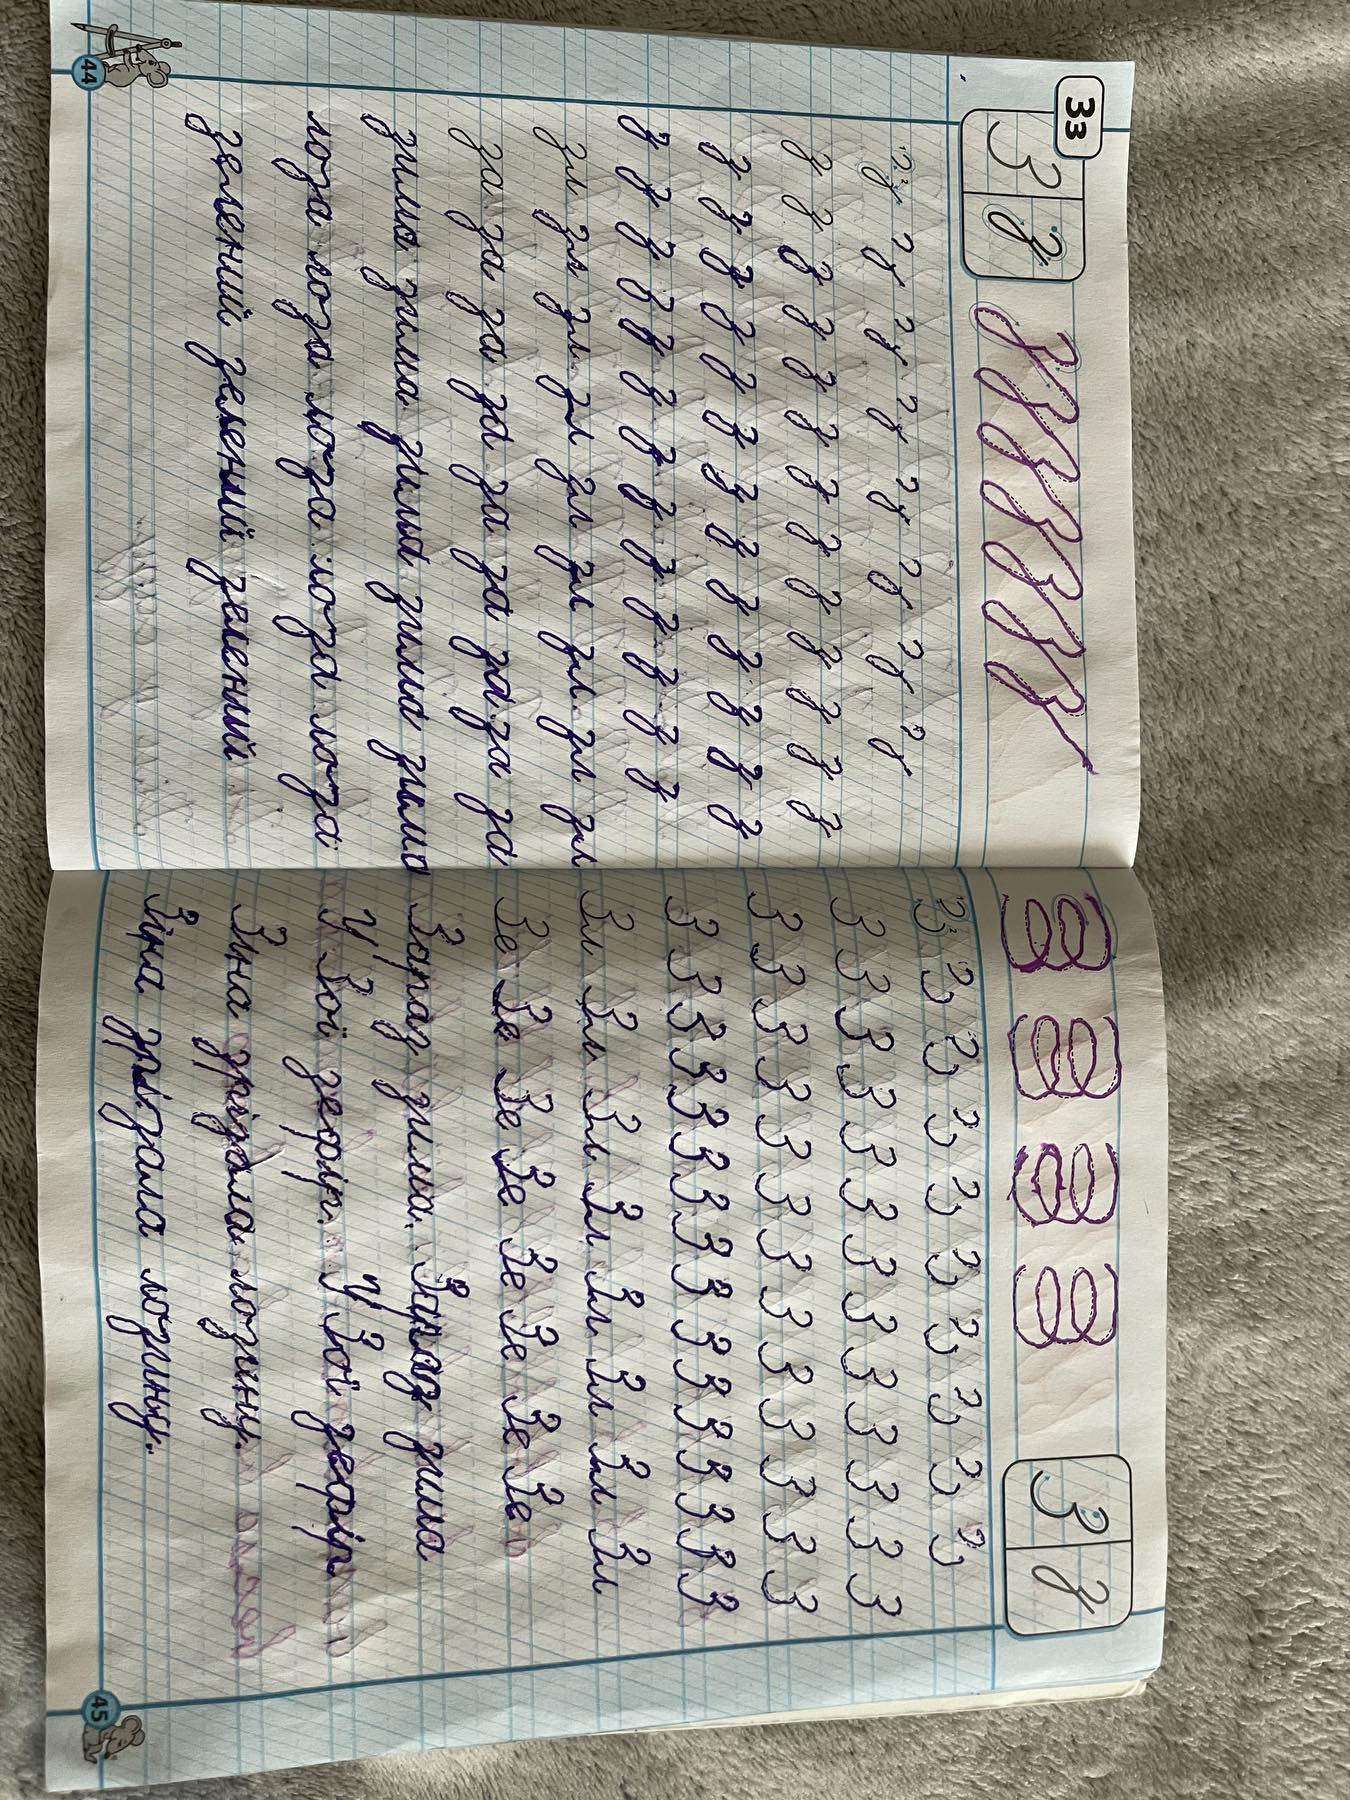 Зз
З з
з з з з з з
з з з з з з з з
з з з з з з з з з з з з з
з з з з з з з з з з з з з
з з з з з з з з з з з з з
зл зл зл зл зл зл зл зл зл
за за за за за за за за за
зима зима зима зима зима
лоза лоза лоза лоза лоза
зелений зелений зелений
44
З з
З З З З З З З З З З
З З З З З З З З З З З З З
З З З З З З З З З З З З З
З З З З З З З З З З З З З
Зл Зл Зл Зл Зл Зл Зл Зл
Зе Зе Зе Зе Зе Зе Зе Зе
Зараз зима. Зараз зима
У Зої зефір. У Зої зефір
Зіна зрізала лозину.
Зіна зрізала лозину.
45